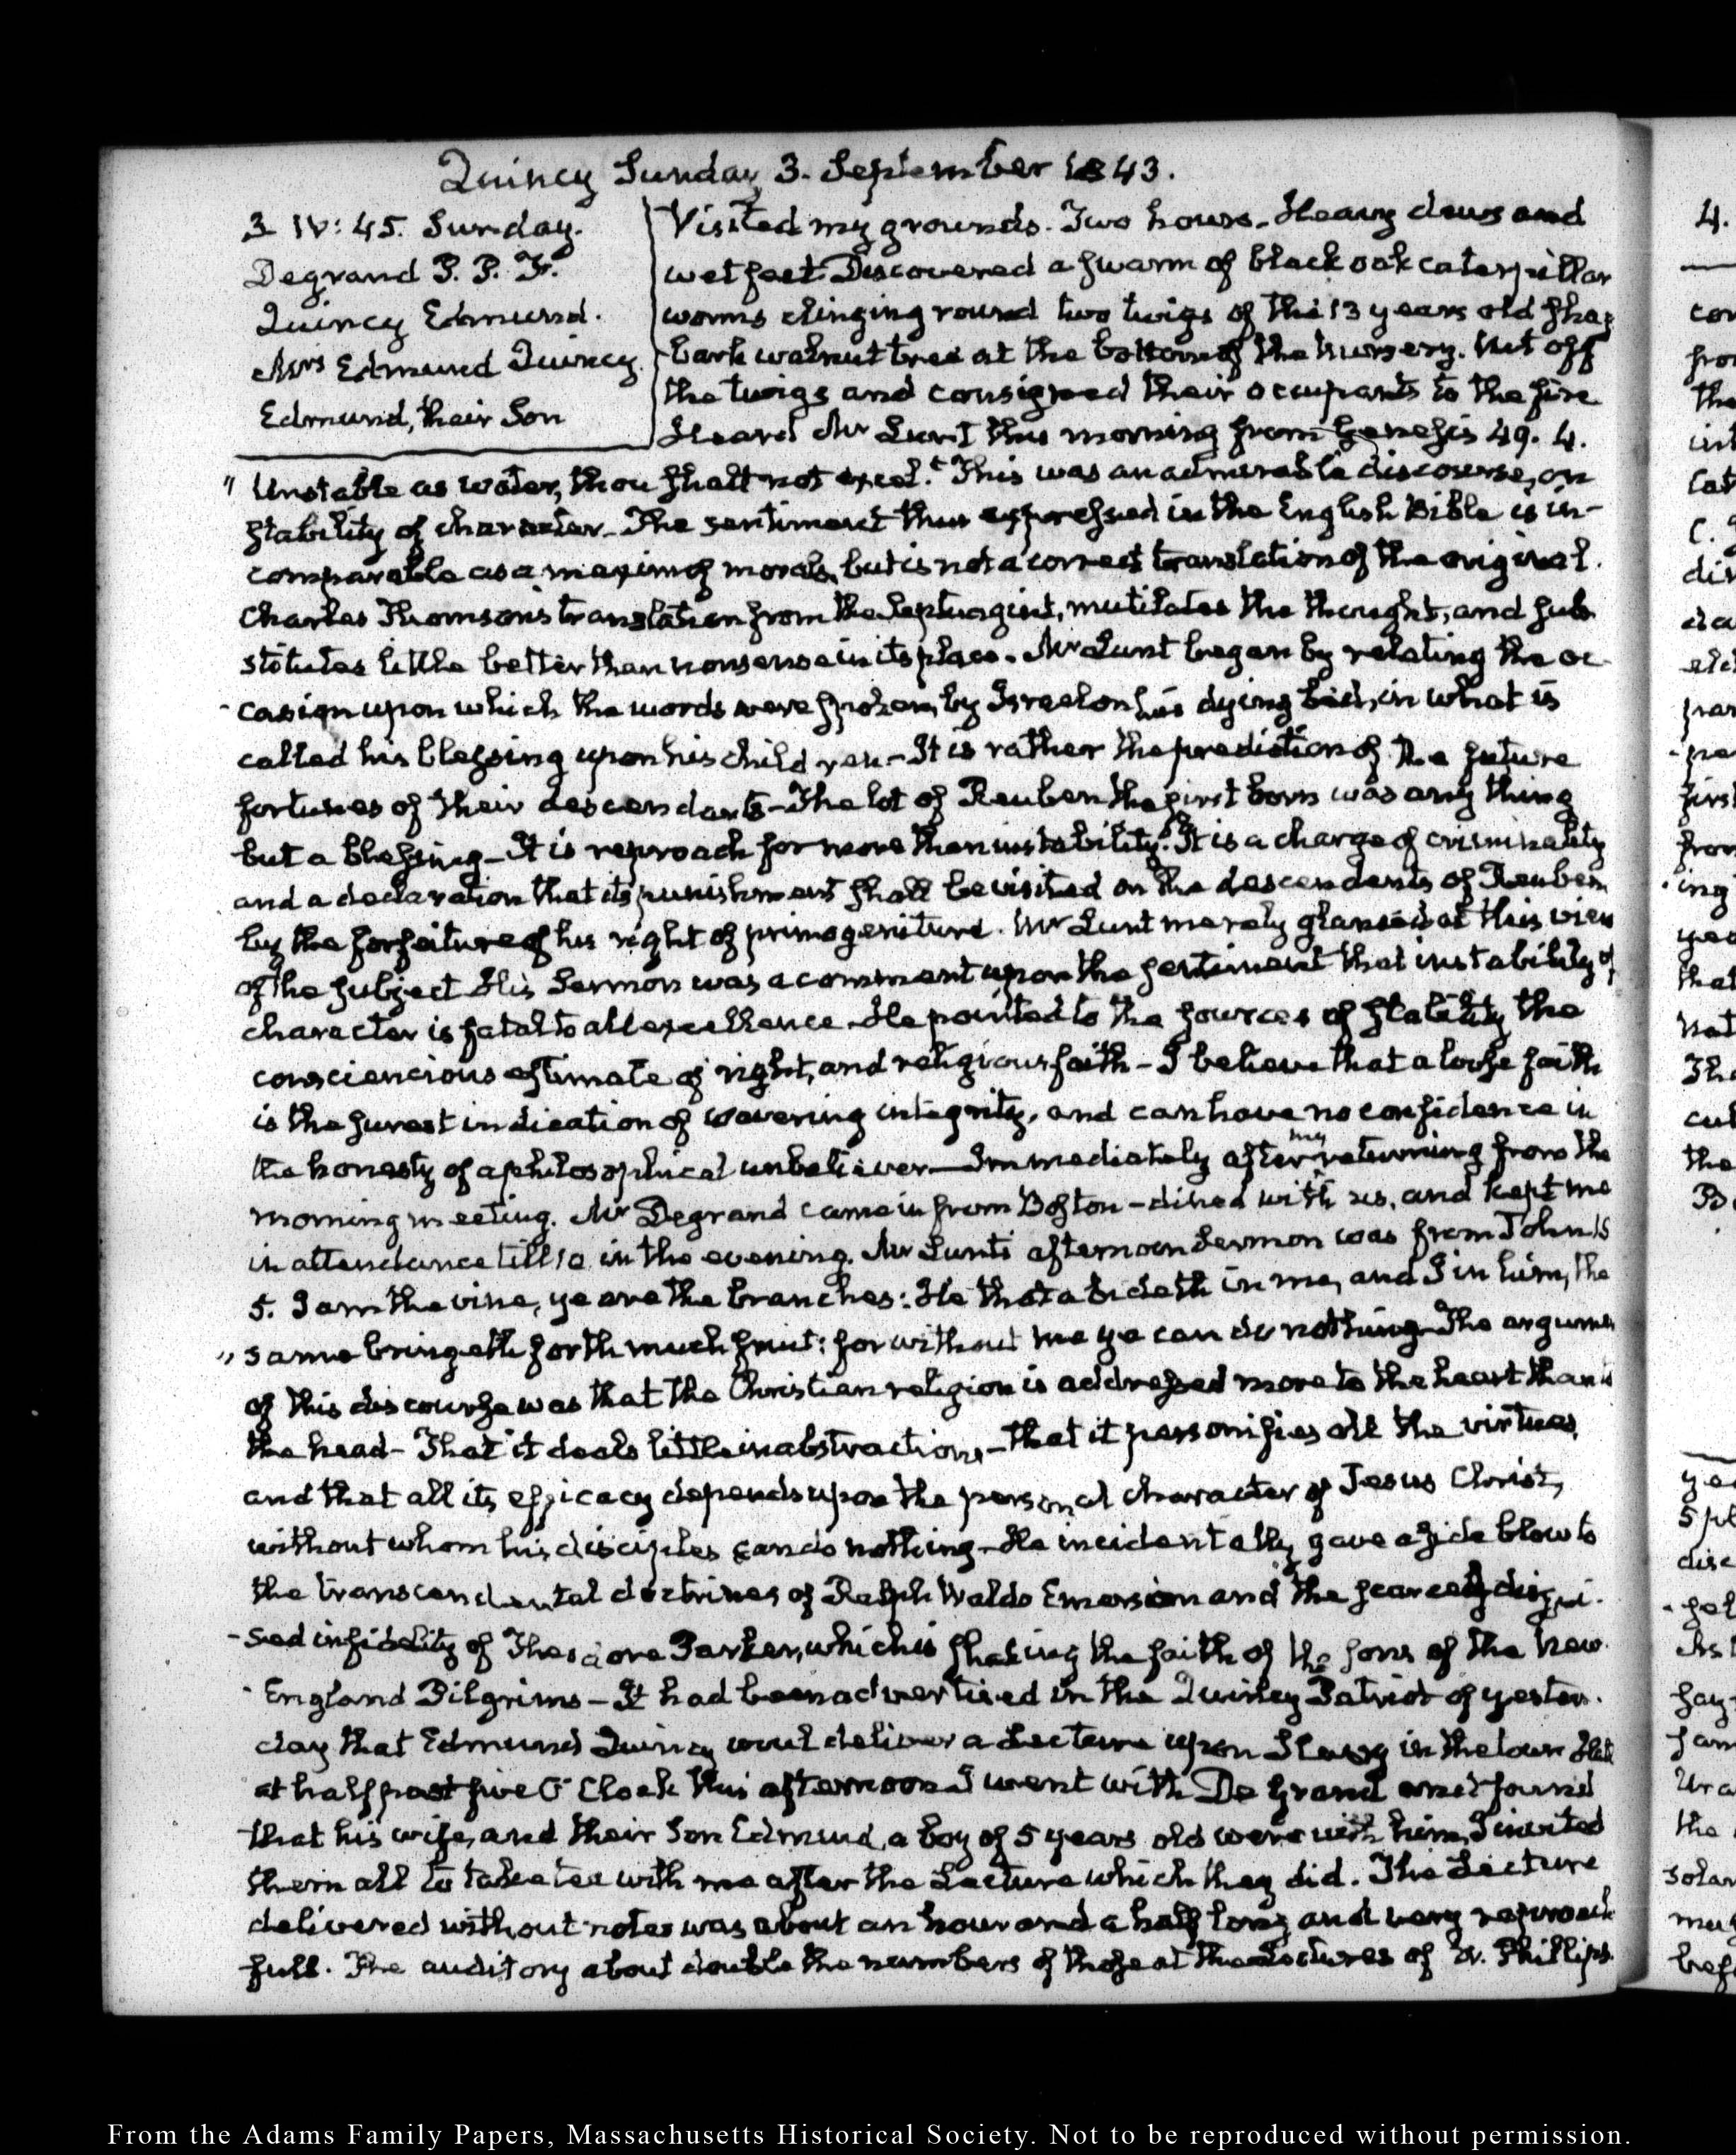 Quincy Sunday 3. September 1843.
3. IV: 45. Sunday.
Degrand P. P. F.
Quincy Edmund.
Mrs Edmund Quincy
Edmund, their Son
Visited my grounds. Two hours. Heavy dews and
wet feet. Discovered a swarm of black oak caterpillar
worms clinging round two twigs of the 13 years old shag
bark walnut tree at the bottom of the nursery. Cut off
the twigs and consigned their occupants to the fire
Heard Mr Lunt this morning from Genesis 49. 4.
"Unstable as water, thou shalt not excel." This was an admirable discourse, on
stability of character. The sentiment thus expressed in the English Bible is in-
comparable as a maxim of morals, but is not a correct translation of the original.
Charles Thomson's translation from the Septuagint, mutilates the thought, and sub
stitutes little better than nonsense in its place. Mr Lunt began by relating the oc-
-casion upon which the words were spoken, by Israel on his dying bed, in what is
called his blessing upon his children - It is rather the prediction of the future
fortunes of their descendants - The lot of Reuben the first born was any thing
but a blessing - It is reproach for more than instability. It is a charge of criminality
and a declaration that its punishment shall be visited on the descendents of Reuben
by the forfeiture of his right of primogeniture. Mr Lunt merely glanced at this view
of the subject. His Sermon was a comment upon the sentiment that instability of
character is fatal to all excellence. He pointed to the sources of stability the
consciencious estimate of right, and religious faith - I believe that a loose faith
is the surest indication of wavering integrity, and can have no confidence in
the honesty of a philosophical unbeliever - Immediately after my returning from the
morning meeting. Mr Degrand came in from Boston - dined with us, and kept me
in attendance till 10 in the evening. Mr Lunt's afternoon Sermon was from John 15
5. I am the vine, ye are the branches: He that abideth in me, and I in him, the
"same bringeth forth much fruit: for without me ye can do nothing. The argumen
of this discourse was that the Christian religion is addressed more to the heart than to
the head - That it deals little in abstractions, - that it personifies all the virtues,
and that all its efficacy depends upon the personal character of Jesus Christ,
without whom his disciples can do nothing - He incidentally gave a side blow to
the transcendental doctrines of Ralph Waldo Emerson and the scarcely disgui-
-sed infidelity of Theodore Parker, which is shaking the faith of the sons of the New
England Pilgrims - It had been advertised in the Quincy Patriot of yester-
day that Edmund Quincy would deliver a Lecture upon Slavery in the town Hall
at half past five O'Clock this afternoon I went with De Grand and found
that his wife, and their Son Edmund, a boy of 5 years old were with him, I invited
them all to take tea with me after the Lecture which they did. The Lecture
delivered without notes was about an hour and a half long and very reproach
full. The auditory about double the numbers of those at the Lectures of W. Phillips.
From the Adams Family Papers, Massachusetts Historical Society. Not to be reproduced without permission.